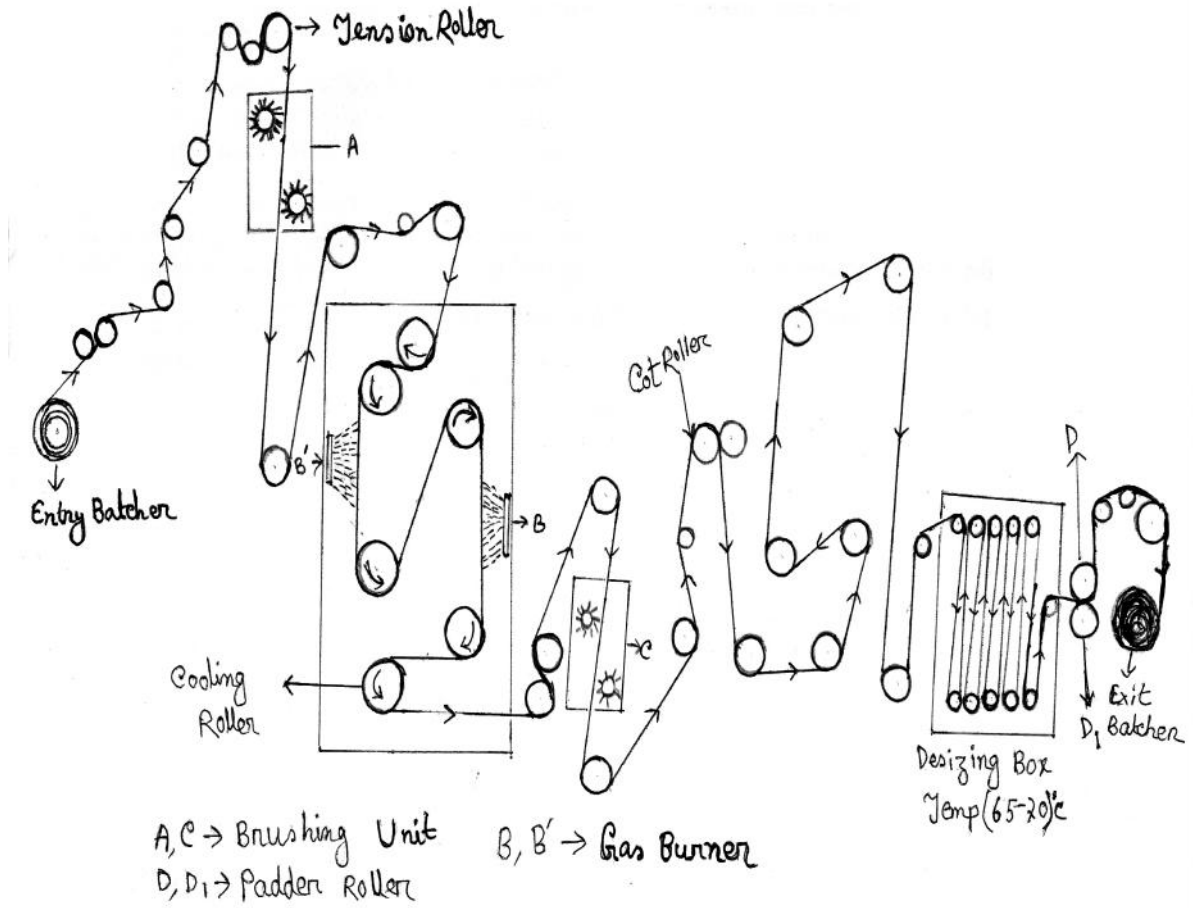 Tension Roller
A
Cot Roller
B'
Entry Batcher
B
D
C
Cooling
Roller
Exit
D1 Batcher
Desizing Box
Temp (65-70)°C
A, C → Brushing Unit
B, B' → Gas Burner
D, D1 → Padder Roller